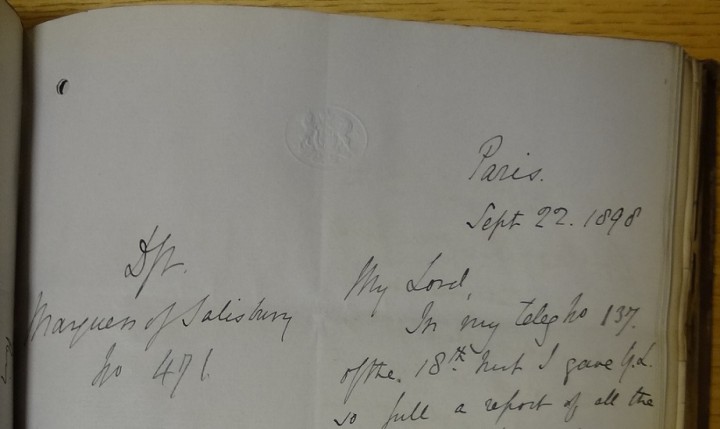 Paris.
Sept 22. 1898
Dft.
Marquess of Salisbury
No 471.
My Lord,
In my teleg No 137.
of the. 18th inst I gave Y.L.
so full a report of all the